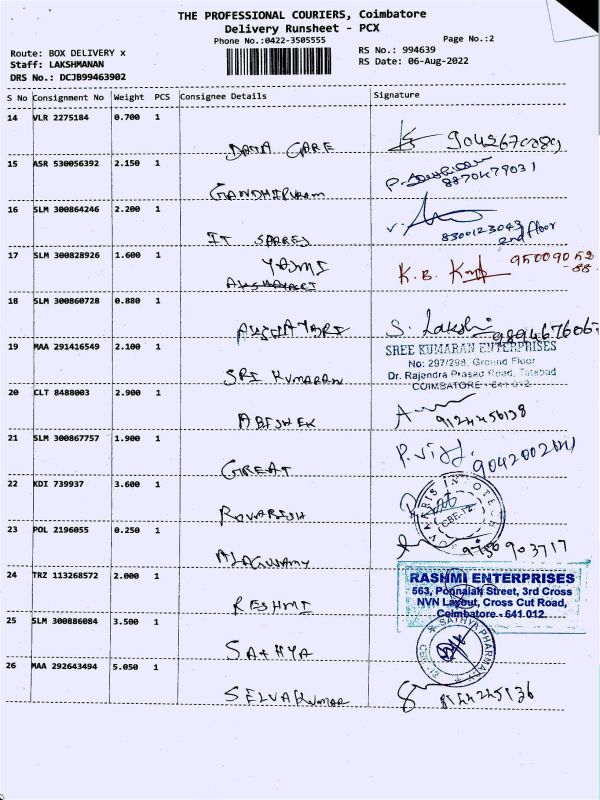 THE PROFESSIONAL COURIERS, Coimbatore
Delivery Runsheet - PCX
Phone No.:0422-3505555
Page No.:2
Route: BOX DELIVERY x
RS No.: 994639
Staff: LAKSHMANAN
RS Date: 06-Aug-2022
DRS No.: DCJB99463902
S No Consignment No Weight PCS Consignee Details Signature
14 VLR 2275184 0.700 1
DATA CARE
15 ASR 530056392 2.150 1
GANDHIPURAM 8870479031
16 SLM 300864246 2.200 1
IT SPARES 8300123043
2nd floor
17 SLM 300828926 1.600 1
K.B. 95009052
88
18 SLM 300860728 0.880 1
AKSHAYARI S. Lakshi
19 MAA 291416549 2.100 1
SREE KUMARAN ENTERPRISES
No: 297/298, Ground Floor
Dr. Rajendra Prasad Road, Tatabad
COIMBATORE - 641 012.
SRI KUMARAN
20 CLT 8488003 2.900 1
ABISHEK 9124456198
21 SLM 300867757 1.900 1
GREAT P. Viji
22 KDI 739937 3.600 1
CBE-12
23 POL 2196055 0.250 1
ALAGUSAMY 9750903717
24 TRZ 113268572 2.000 1
RASHMI ENTERPRISES
563, Ponnaiah Street, 3rd Cross
NVN Layout, Cross Cut Road,
Coimbatore - 641 012.
RESHMI
25 SLM 300886084 3.500 1
SATHYA PHARMACY
SATHYA
26 MAA 292643494 5.050 1
SELVAKUMAR